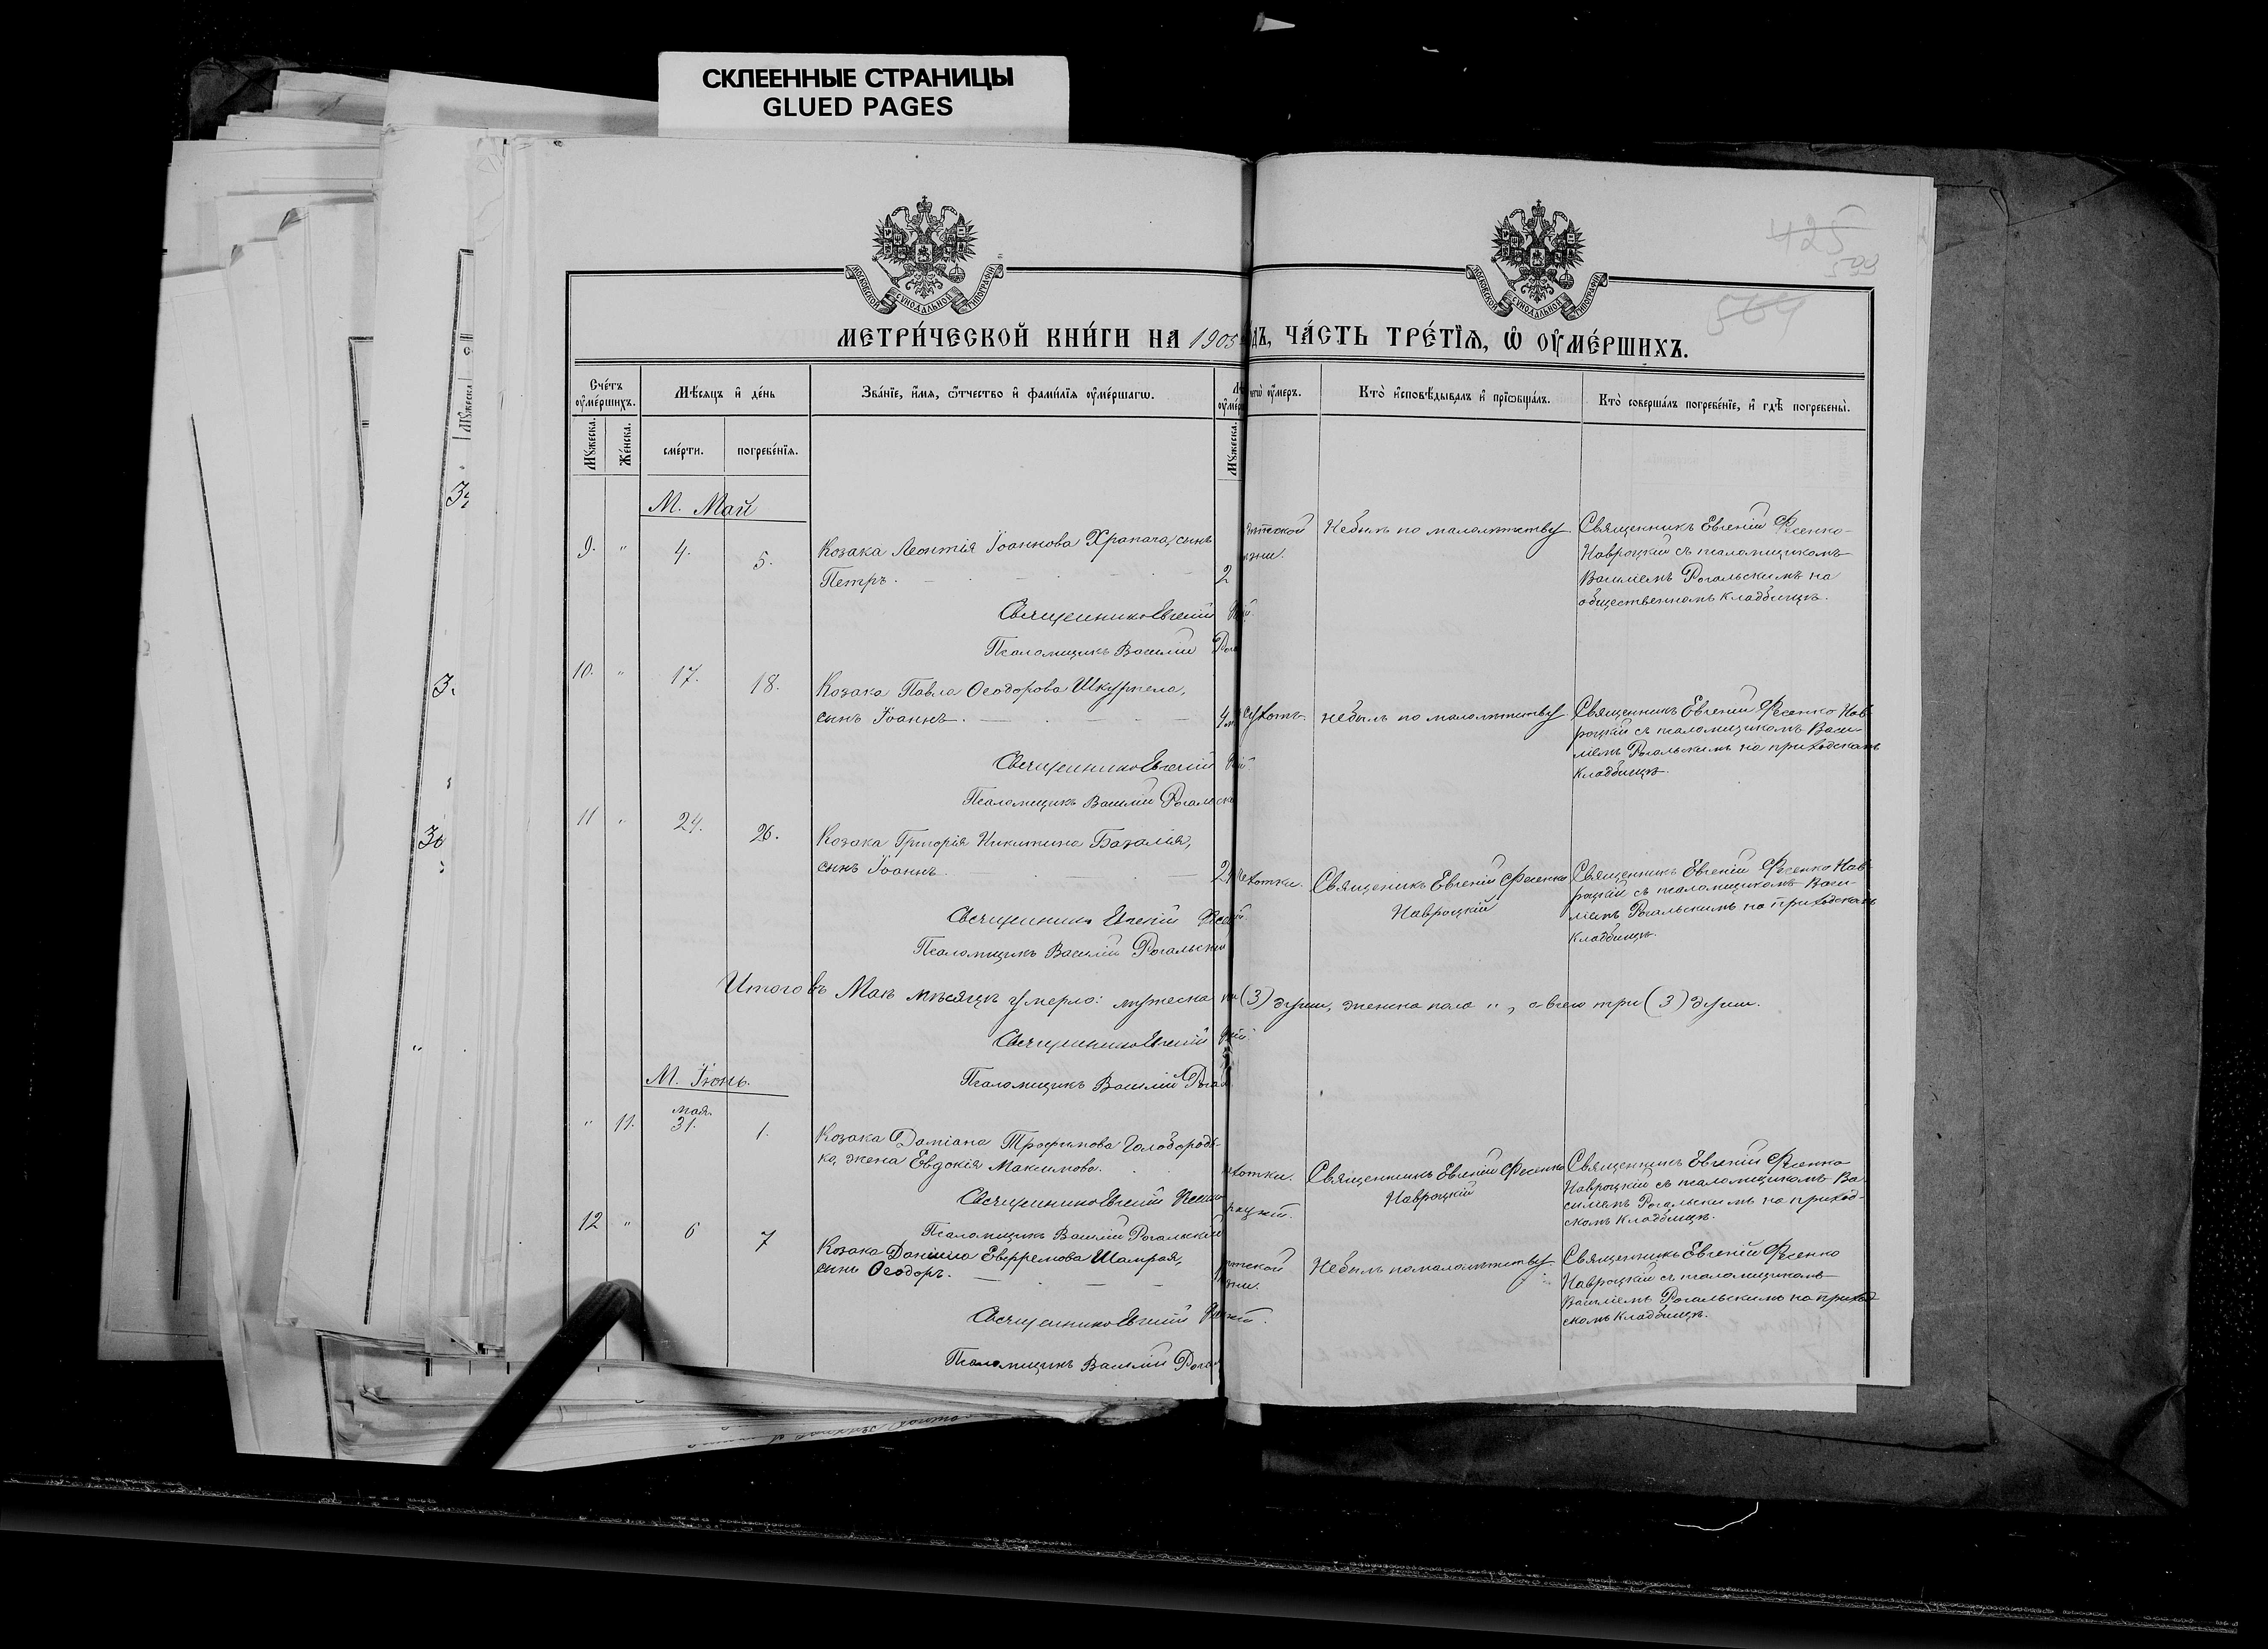 СКЛЕЕННЫЕ СТРАНИЦЫ
GLUED PAGES
425
599
564
МОСКОВСКОЙ СѴНОДАЛЬНОЙ ТИПОГРАФІИ
МОСКОВСКОЙ СѴНОДАЛЬНОЙ ТИПОГРАФІИ
МЕТРИ́ЧЕСКОЙ КНИ́ГИ НА 1905
дъ, ЧА́СТЬ ТРЕ́ТЇѦ, Ѽ ОУ҆МЕ́РШИХЪ.
Сче́тъ оу҆ме́ршихъ.
Мѣ́сяцъ и҆ де́нь
Зва́нїе, и҆́мѧ, ѻ҆́тчество и҆ фами́лїѧ оу҆ме́ршагѡ.
оу҆́меръ.
Кто̀ и҆сповѣ́дывалъ и҆ прїѡбща́лъ.
Кто̀ соверша́лъ погребе́нїе, и҆ гдѣ̀ погребены̀.
Мꙋ́жеска.
Же́нска.
сме́рти.
погребе́нїѧ.
Мꙋ́жеска.
М. Май
9. " 4. 5.
Козака Леонтія Іоаннова Храпача, сынъ
Петръ.
2
Небылъ по малолѣтству
Священникъ Евгеній Фесенко-
Навроцкій съ псаломщикомъ
Василіемъ Рогальскимъ на
общественномъ кладбищѣ.
Священникъ Евгеній
Псаломщикъ Василій
10. " 17. 18.
Козака Павла Ѳеодорова Шкурпела,
сынъ Іоаннъ.
4 м
сухотъ.
небылъ по малолѣтству
Священникъ Евгеній Фесенко Нав-
роцкій съ псаломщикомъ Васи-
ліемъ Рогальскимъ на приходскомъ
кладбищѣ.
Священникъ Евгеній
Псаломщикъ Василій Рогальск
11 " 24. 26.
Козака Григорія Никитина Базалія,
сынъ Іоаннъ
2
хотки.
Священикъ Евгеній Фесенко
Навроцкій
Священникъ Евгеній Фесенко Нав-
роцкій съ псаломщикомъ Васи-
ліемъ Рогальскимъ на приходскомъ
кладбищѣ.
Священникъ Евгеній
Псаломщикъ Василій Рогальскій
Итого въ Маѣ мѣсяцѣ умерло: мужеска (3) души, женска пола ", а всего три (3) души.
Священникъ Евгеній
Псаломщикъ Василій
М. Іюнь.
" 11. мая. 31. 1.
Козака Даміана Трофимова Голобородь-
ка, жена Евдокія Максимова.
хотки.
Священникъ Евгеній Фесенко
Навроцкій
Священникъ Евгеній Фесенко
Навроцкій съ псаломщикомъ Ва-
силіемъ Рогальскимъ на приход-
скомъ кладбищѣ.
Священникъ Евгеній
роцкій.
Псаломщикъ Василій Рогальскій
12 " 6 7
Козака Даніила Евфремова Шамрая,
сынъ Ѳеодоръ.
Небылъ по малолѣтству
Священникъ Евгеній Фесенко
Навроцкій съ псаломщикомъ
Василіемъ Рогальскимъ на приход-
скомъ кладбищѣ.
Священникъ Евгеній
Псаломщикъ Василій